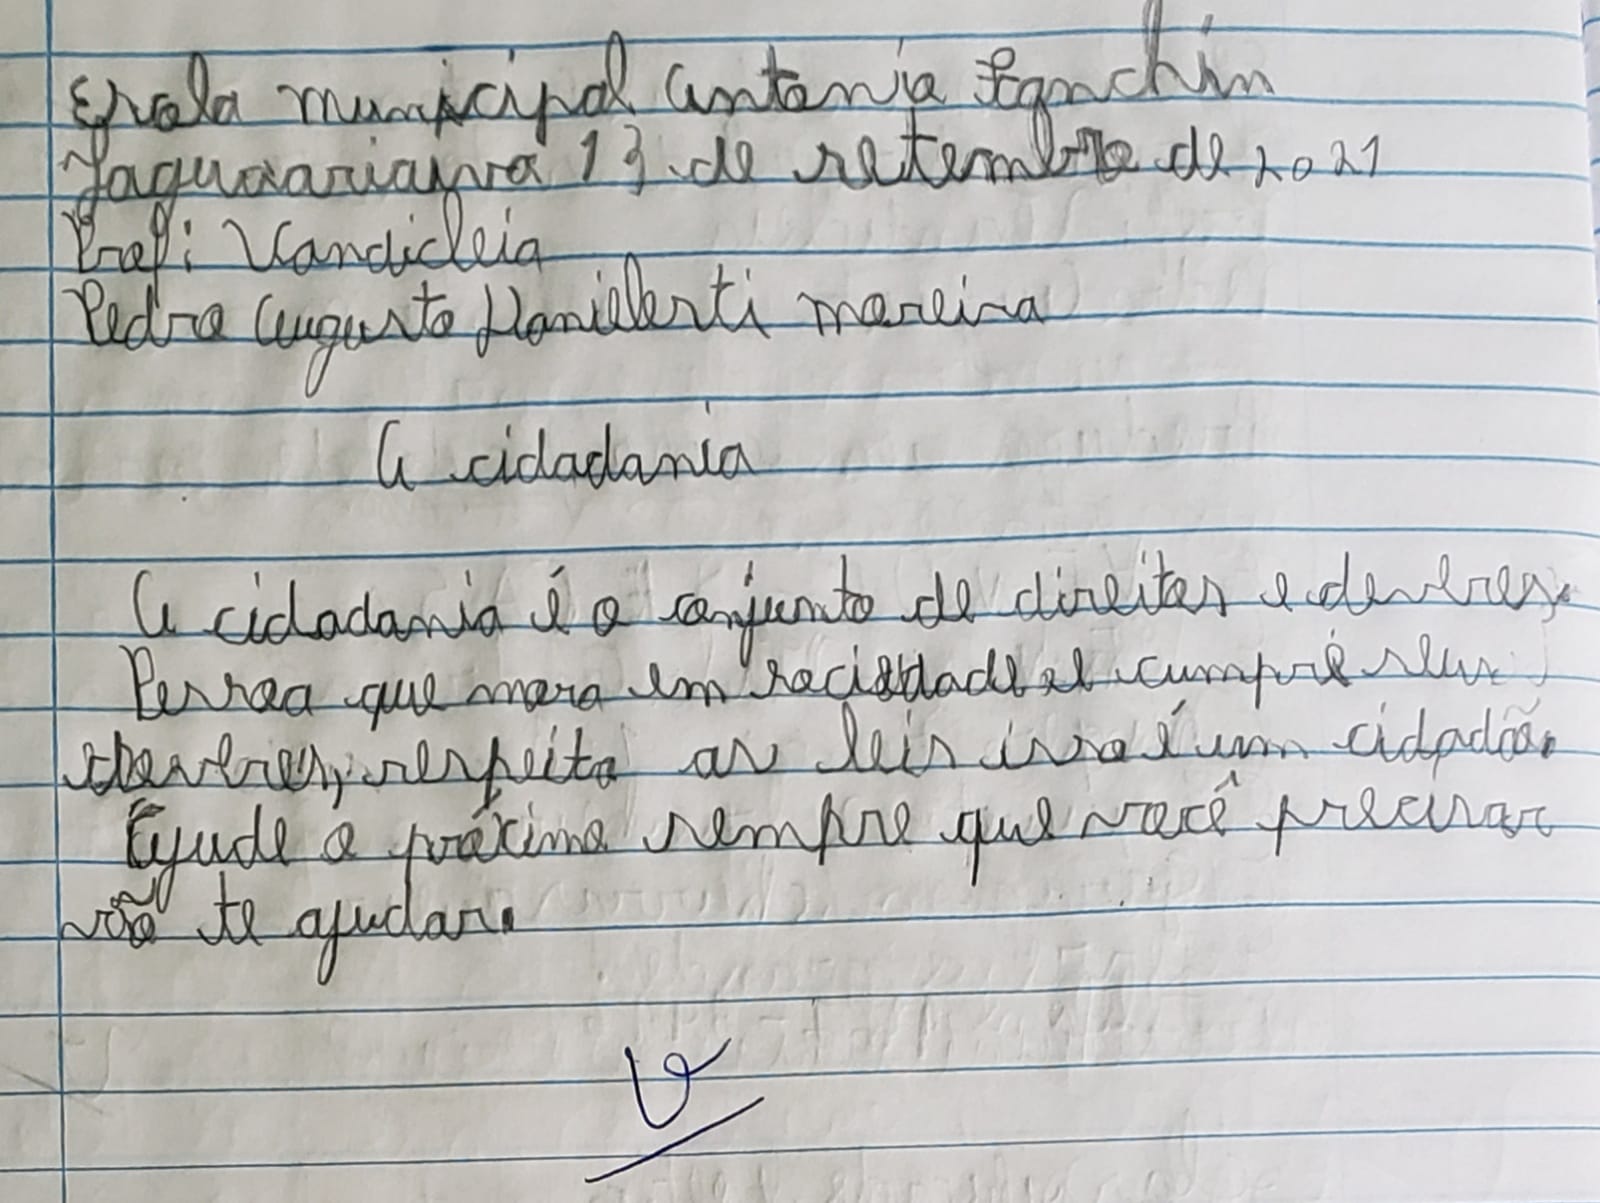 Escola municipal Antonia
Jaguariaiva 13 de setembro de 2021
Prof: Vandicleia
Pedro Augusto moreira
A cidadania
A cidadania é o conjunto de direitos e deveres.
Pessoa que mora em sociedade e cumpre seus
deveres, respeita as leis isso é um cidadão.
Ajude o próximo sempre que você precisar
vão te ajudar.